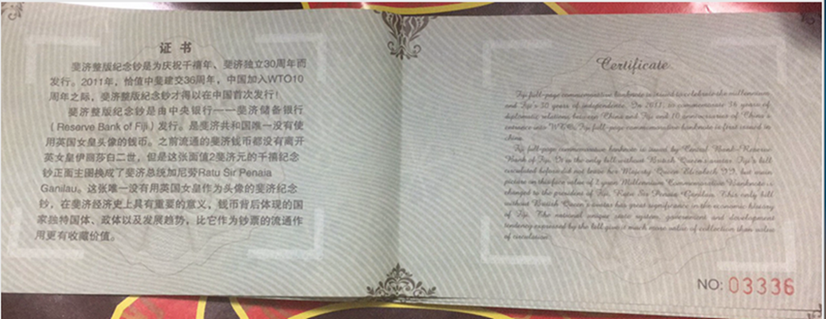 证 书
斐济整版纪念钞是为庆祝千禧年、斐济独立30周年而
发行。2011年，恰值中斐建交36周年，中国加入WTO10
周年之际，斐济整版纪念钞才得以在中国首次发行！
斐济整版纪念钞是由中央银行——斐济储备银行
（Reserve Bank of Fiji）发行。是斐济共和国唯一没有使
用英国女皇头像的钱币。之前流通的斐济钱币都没有离开
英女皇伊丽莎白二世，但是这张面值2斐济元的千禧纪念
钞正面主图换成了斐济总统加尼劳Ratu Sir Penaia
Ganilau。这张唯一没有用英国女皇作为头像的斐济纪念
钞，在斐济经济史上具有重要的意义，钱币背后体现的国
家独特国体、政体以及发展趋势，比它作为钞票的流通作
用更有收藏价值。
Certificate
Fiji full-page commemorative banknote is issued to celebrate the millennium
and Fiji's 30 years of independence. In 2011, to commemorate 36 years of
diplomatic relations between China and Fiji and 10 anniversary of China's
entrance into WTO, Fiji full-page commemorative banknote is first issued in
china.
Fiji full-page commemorative banknote is issued by Central Bank-Reserve
Bank of Fiji. It is the only bill without British Queen's avatar. Fiji's bill
circulated before did not leave her Majesty Queen Elizabeth II, but main
picture on this face value of 2 yuan Millennium Commemorative Banknote is
changed to the president of Fiji, Ratu Sir Penaia Ganilau. This only bill
without British Queen's avatar has great significance in the economic history
of Fiji. The national unique state system, government and development
tendency expressed by the bill give it much more value of collection than value
of circulation.
NO: 03336